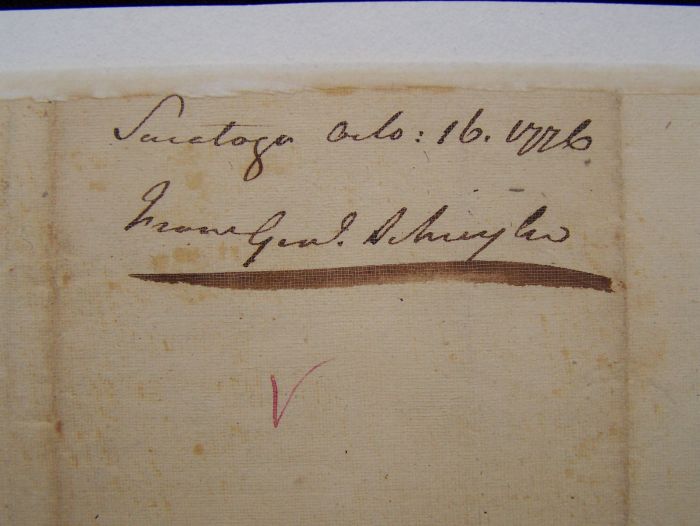 Saratoga Octo: 16. 1776
From Genl. Schuyler
V